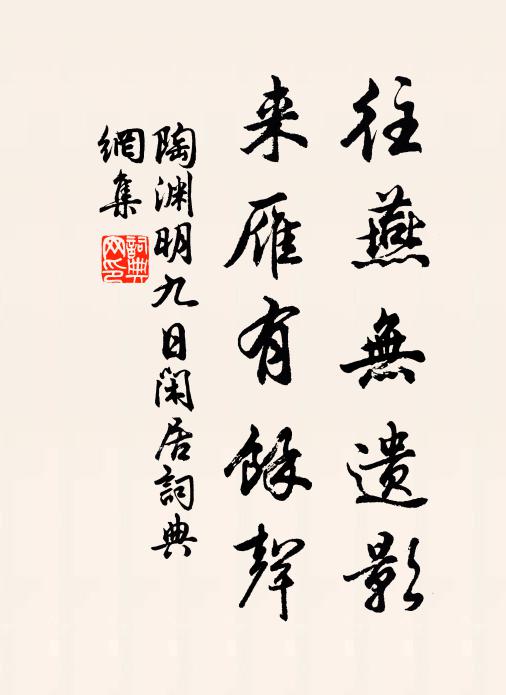 往燕無遺影
来雁有餘聲
陶渊明九日闲居詞典
網集
詞典
网印